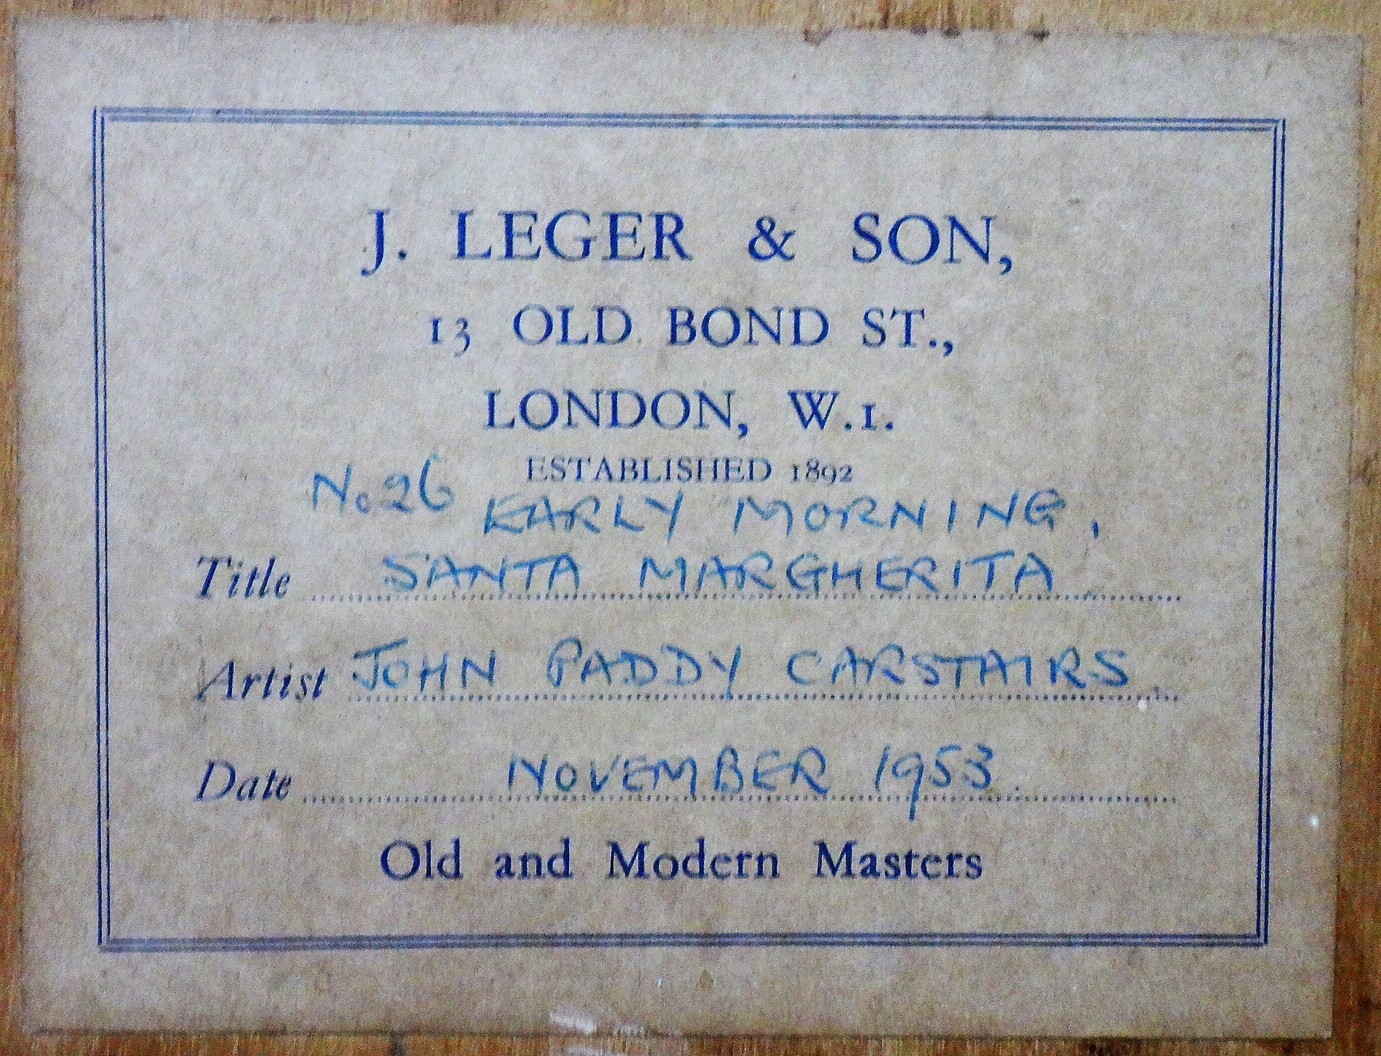 J. LEGER & SON,
13 OLD BOND ST.,
LONDON, W.1.
ESTABLISHED 1892
No 26 EARLY MORNING,
Title SANTA MARGHERITA
Artist JOHN PADDY CARSTAIRS
Date NOVEMBER 1953.
Old and Modern Masters